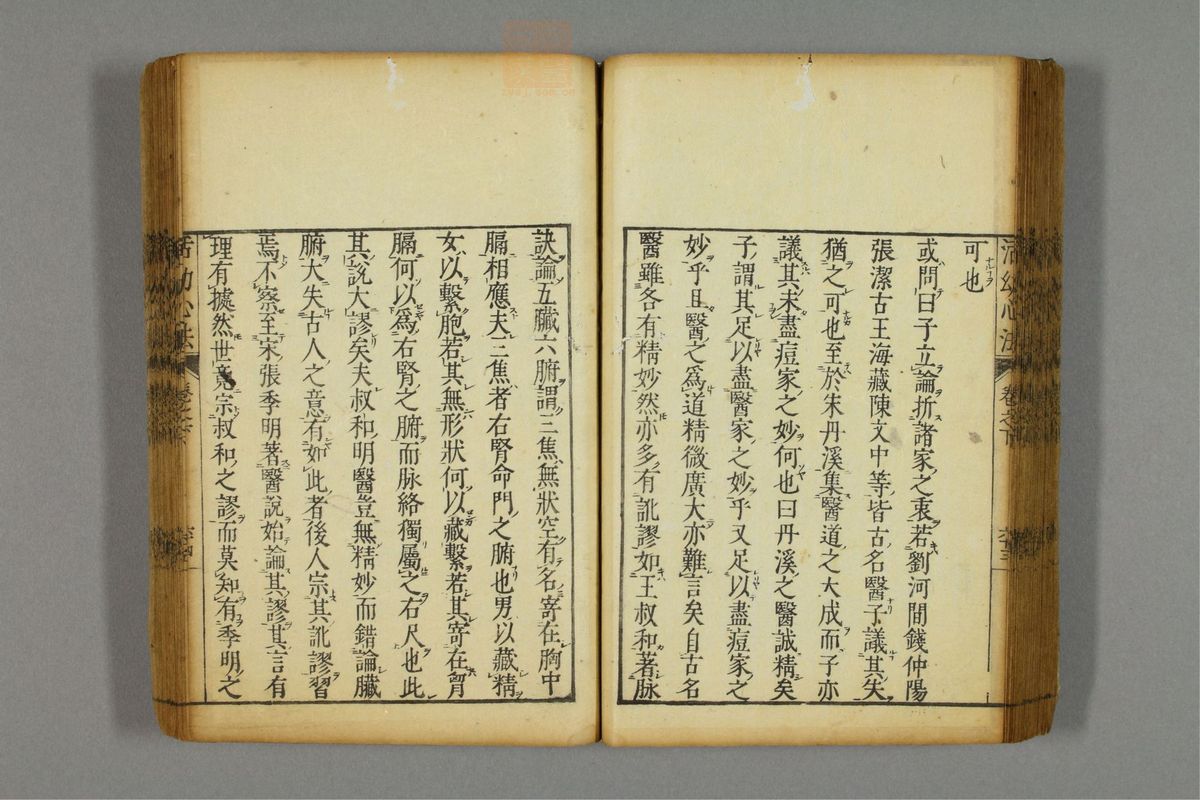 活幼心法 卷之下
可也
或問曰子立論折諸家之衷若劉河間錢仲陽
張潔古王海藏陳文中等皆古名醫子議其失
猶之可也至於朱丹溪集醫道之大成而子亦
議其未盡痘家之妙何也曰丹溪之醫誠精矣
子謂其足以盡醫家之妙乎又足以盡痘家之
妙乎且醫之為道精微廣大亦難言矣自古名
醫雖各有精妙然亦多有訛謬如王叔和著脉
訣論五臟六腑謂三焦無狀空有名寄在胸中
膈相應夫三焦者右腎命門之腑也男以藏精
女以繫胞若其無形狀何以藏繫若其寄在胷
膈何以為右腎之腑而脉絡獨屬之右尺也此
其說大謬矣夫叔和明醫豈無精妙而錯論臟
腑大失古人之意有如此者後人宗其訛謬習
焉不察至宋張季明著醫說始論其謬其言有
理有據然世竟宗叔和之謬而莫知有季明之
活幼心法 卷之下